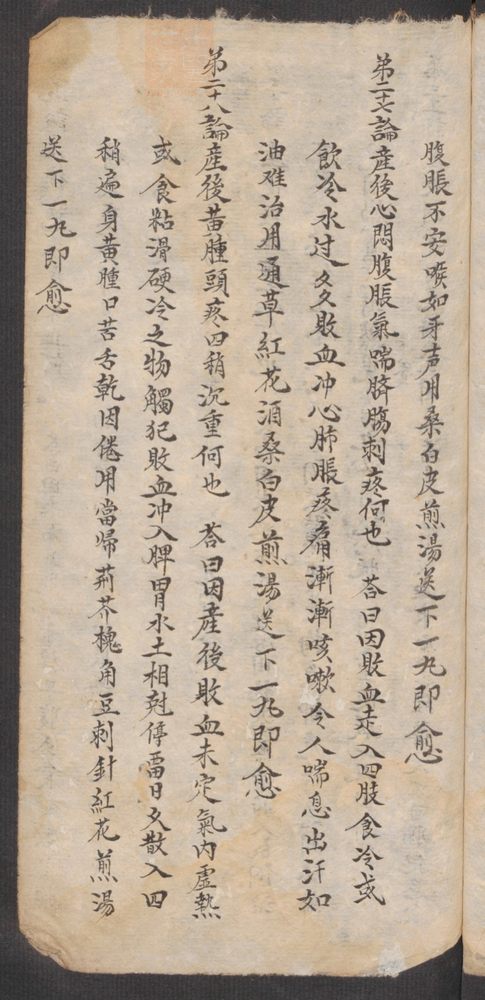 腹脹不安喉如牙声用桑白皮煎湯送下一丸即愈
第二十七論產後心悶腹脹氣喘臍腸刺疼何也　荅曰因敗血走入四肢食冷或
飲冷水过多敗血冲心肺脹疼痛漸漸咳嗽令人喘息出汗如
油难治用通草紅花酒桑白皮煎湯送下一丸即愈
第二十八論產後黃腫頭疼四稍沉重何也　荅曰因產後敗血未定氣內虛熱
或食粘滑硬冷之物觸犯敗血冲入脾胃水土相尅停畱日久散入四
稍遍身黃腫口苦舌乾因倦用當歸荊芥槐角豆刺針紅花煎湯
送下一丸即愈